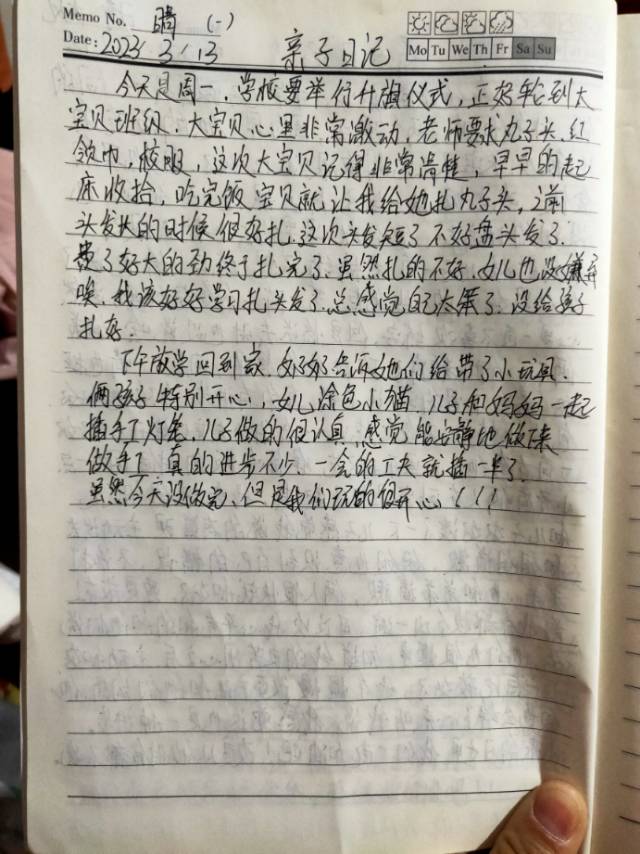 Memo No. 晴 (一)
Date: 2023/3/13 亲子日记
Mo Tu We Th Fr Sa Su
今天是周一，学校要举行升旗仪式，正好轮到大
宝贝班级，大宝贝心里非常激动，老师要求丸子头，红
领巾，校服，这次大宝贝记得非常清楚，早早的起
床收拾，吃完饭宝贝就让我给她扎丸子头，之前
头发长的时候很好扎，这次头发短了不好盘头发了，
费了好大的劲终于扎完了，虽然扎的不好，女儿也没嫌弃
唉，我该好好学习扎头发了，总感觉自己太笨了，没给孩子
扎好。
下午放学回到家，奶奶告诉她们给带了小玩具，
俩孩子特别开心，女儿涂色小猫，儿子和妈妈一起
插手工灯笼，儿子做的很认真，感觉能安静地做下来
做手工真的进步不少，一会的工夫就插一半了，
虽然今天没做完，但是我们玩的很开心！！！